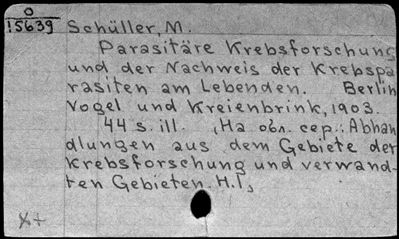 O
15639 Schüller, M.
Parasitäre Krebsforschung
und der Nachweis der Krebspa
rasiten am Lebenden. Berlin
Vogel und Kreienbrink, 1903.
44 s. ill. (На обл. сер.: Abhan
dlungen aus dem Gebiete der
Krebsforschung und verwand-
ten Gebieten. H.I)